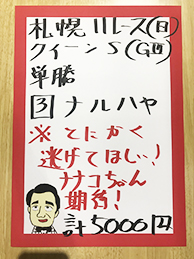 札幌11レース(日)
クイーンS(GⅢ)
単勝
3 ナルハヤ
※とにかく
逃げてほしい!
ナナコちゃん
期待!
計5000円